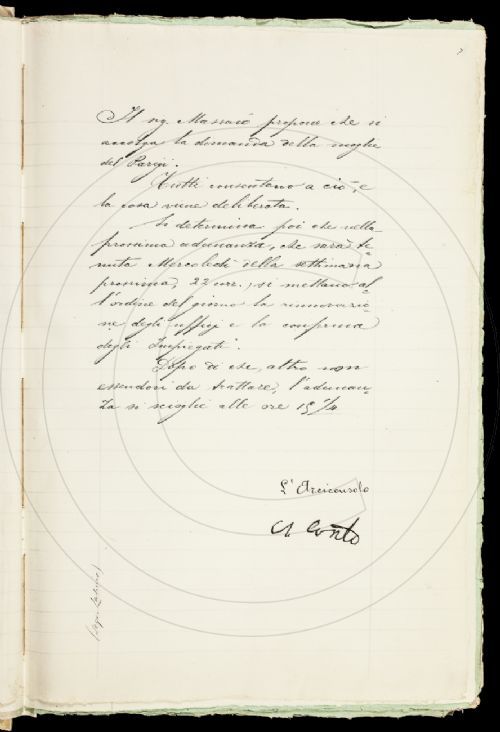 Il sig. Massaio propone che si
accolga la domanda della moglie
del Parigi.
Tutti consentono a ciò, e
la cosa viene deliberata.
Si determina poi che nella
prossima adunanza, che sarà te=
nuta Mercoledì della settimana
prossima, 22 corr., si mettano al=
l'ordine del giorno la rinnovazio=
ne degli uffizj e la conferma
degli Impiegati.
Dopo di che, altro non
essendovi da trattare, l'adunan=
za si scioglie alle ore 15 1/4
L'Arciconsolo
A Conto